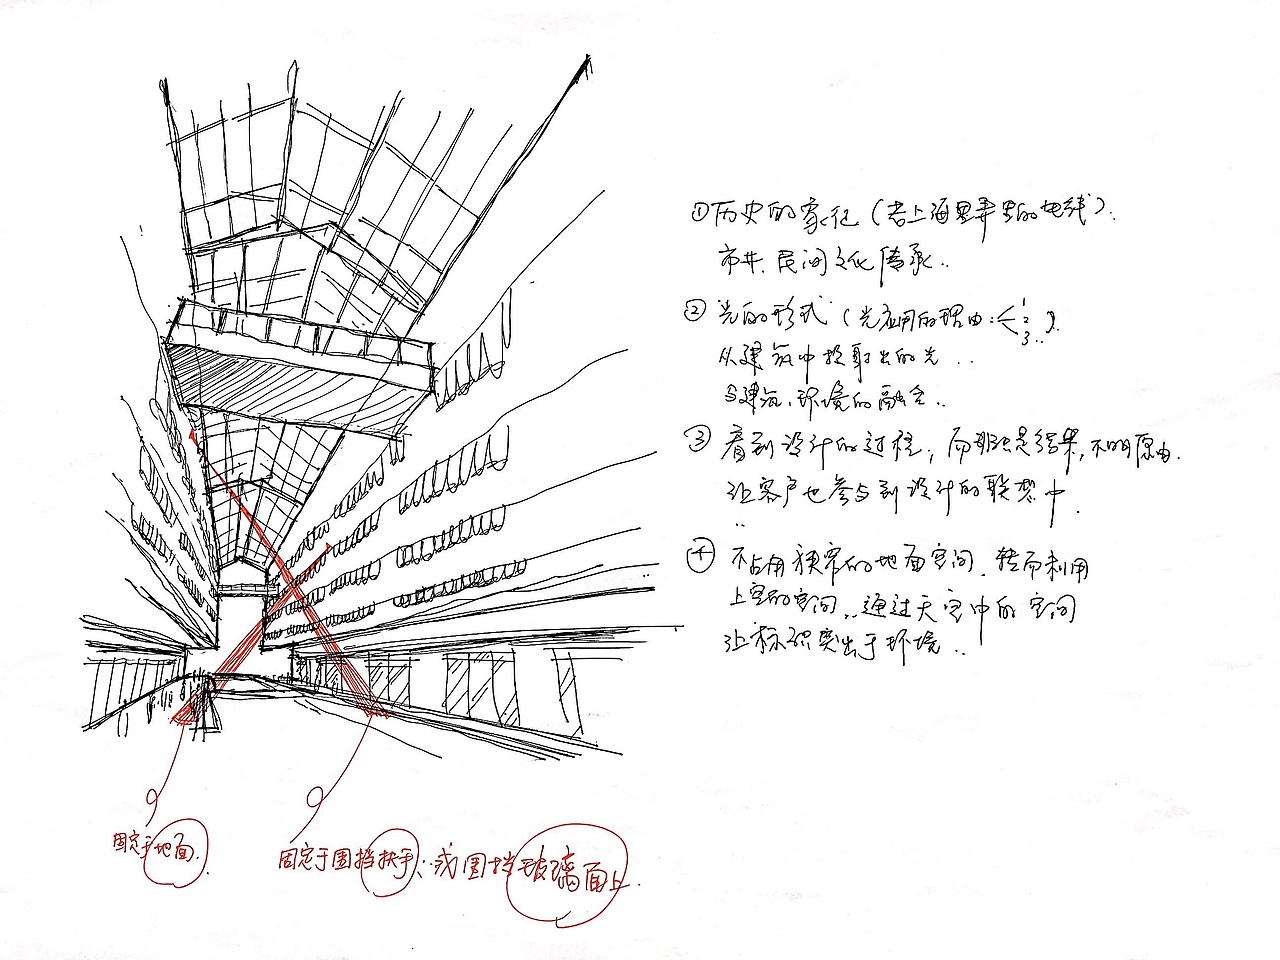 ①历史的象征（老上海里弄里的地线）.
市井、民间文化传承..
②光的形式（光应用的理由:<1 2 3..）.
从建筑中投射出的光..
与建筑、环境的融合..
③看到设计的过程，而非只是结果，不明原由.
让客户也参与到设计的联想中.
④不占用狭窄的地面空间、转而利用
上空的空间，通过天空中的空间
让标识突出于环境..
固定于地面.
固定于围挡扶手、或围挡玻璃面上.